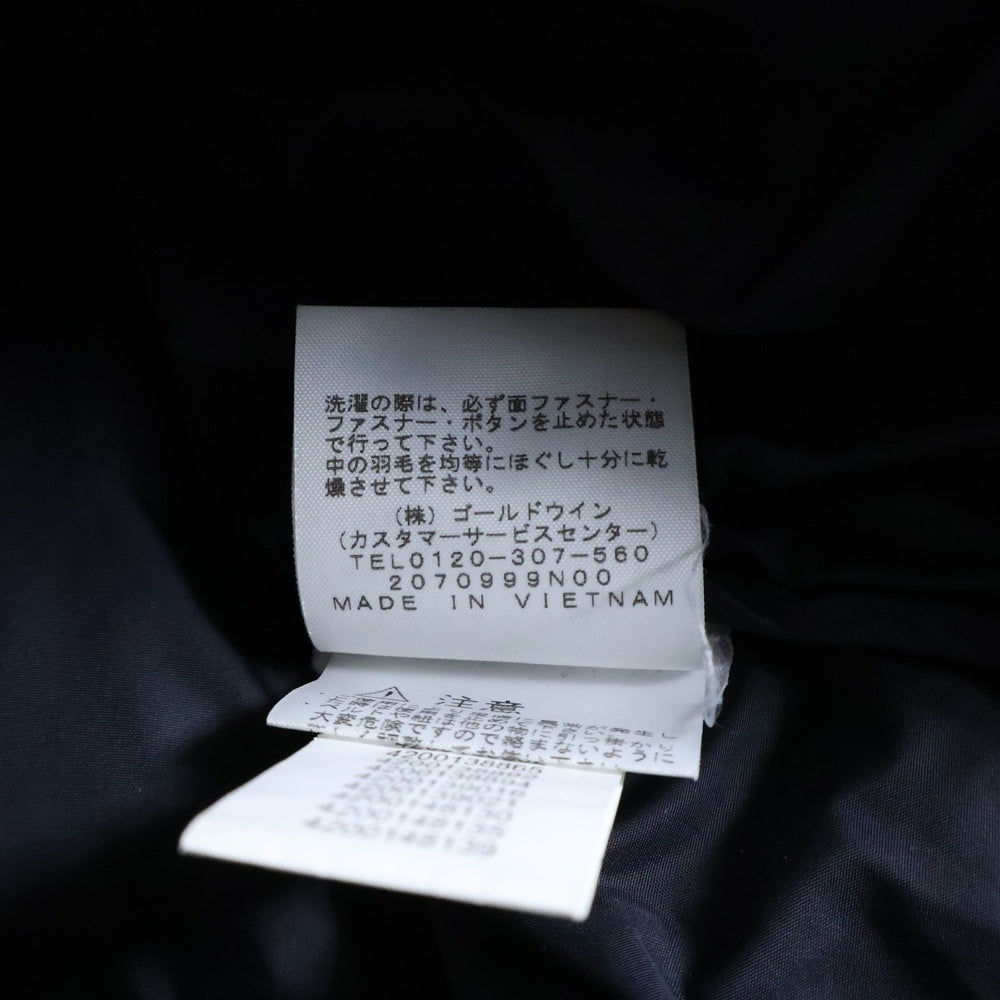 洗濯の際は、必ず面ファスナー・
ファスナー・ボタンを止めた状態
で行って下さい。
中の羽毛を均等にほぐし十分に乾
燥させて下さい。
(株) ゴールドウイン
(カスタマーサービスセンター)
TEL0120-307-560
2070999N00
MADE IN VIETNAM
注意
大変危険ですので絡まないように
4200138865